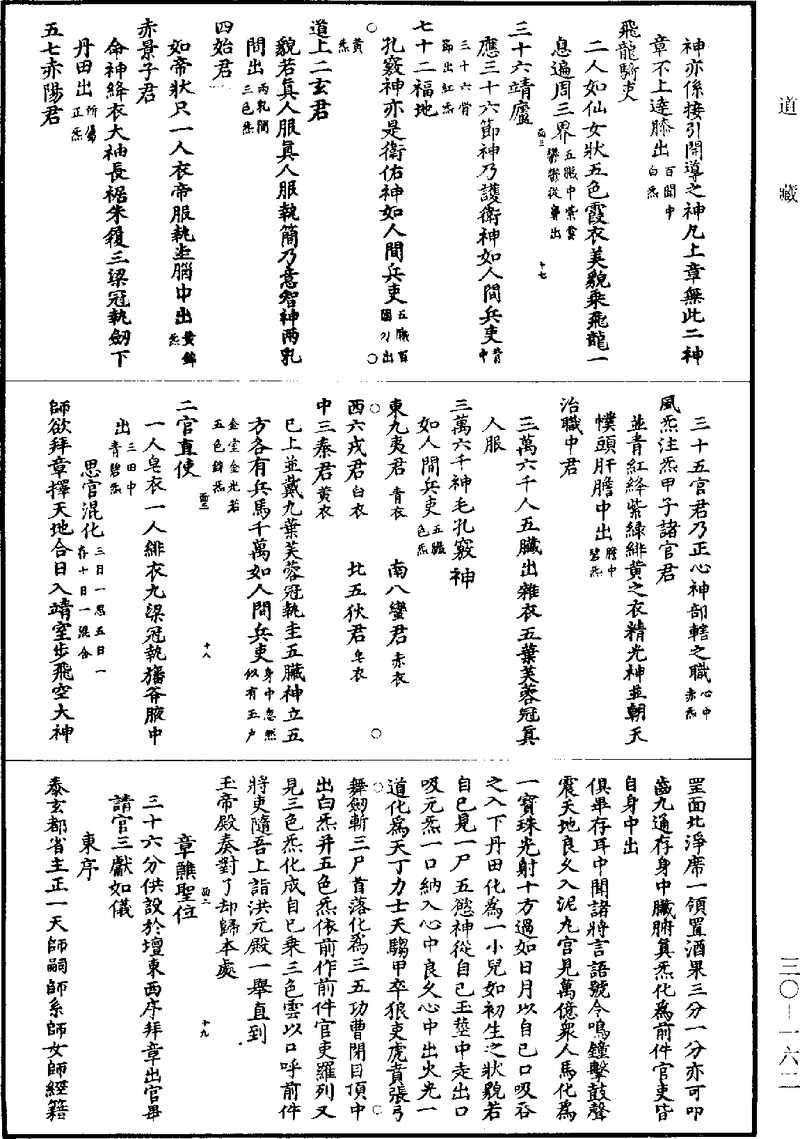 道藏
神亦係接引開導之神凡上章無此二神
章不上達膝出百關中白炁
飛龍騎吏
二人如仙女狀五色霞衣美貌乘飛龍一
息遍周三界五臟中紫黃鬱鬱從竅出
三十六靖廬 十七
應三十六節神乃護衛神如人間兵吏背中
三十六骨節出紅炁
七十二福地
孔竅神亦是衛佑神如人間兵吏五臟百關竅出
黃炁
道上二玄君
貌若真人服真人服執簡乃意智神兩乳
間出兩乳間三色炁
四始君
如帝狀只一人衣帝服執圭腦中出黃錦炁
赤景子君
命神絳衣大袖長裾朱履三梁冠執劒下
丹田出所傷正炁
五七赤陽君
三十五官君乃正心神部轄之職心中赤炁
風炁注炁甲子諸官君
並青紅絳紫綠緋黃之衣精光神並朝天
幞頭肝膽中出膽中碧炁
治職中君
三萬六千人五臟出雜衣五葉芙蓉冠真
人服
三萬六千神毛孔竅神
如人間兵吏五臟色炁
東九夷君青衣 南八蠻君赤衣
西六戎君白衣 北五狄君皂衣
中三秦君黃衣
已上並戴九葉芙蓉冠執圭五臟神立五
方各有兵馬千萬如人間兵吏身中忽然似有玉戶
金堂金光若五色錦炁
二官直使 十八
一人皂衣一人緋衣九梁冠執旛斧腋中
出三田中青碧炁
思官混化三日一思五日一存十日一混合
師欲拜章擇天地合日入靖室步飛空大神
罡面北淨席一領置酒果三分一分亦可叩
齒九通存身中臟腑真炁化為前件官吏皆
自身中出
俱畢存耳中聞諸將言語號令鳴鐘擊鼓聲
震天地良久入泥丸宮見萬億衆人馬化為
一寶珠光射十方過如日月以自己口吸吞
之入下丹田化為一小兒如初生之狀貌若
自己見一尸五慾神從自己玉莖中走出口
吸元炁一口納入心中良久心中出火光一
道化為天丁力士天騶甲卒狼吏虎賁張弓
舞劒斬三尸首落化為三五功曹閉目頂中
出白炁并五色炁依前作前件官吏羅列又
見三色炁化成自己乘三色雲以口呼前件
將吏隨吾上詣洪元殿一舉直到
玉帝殿奏對了却歸本處
章醮聖位 十九
三十六分供設於壇東西序拜章出官畢
請官三獻如儀
東序
泰玄都省主正一天師嗣師系師女師經籍
三〇—一六二